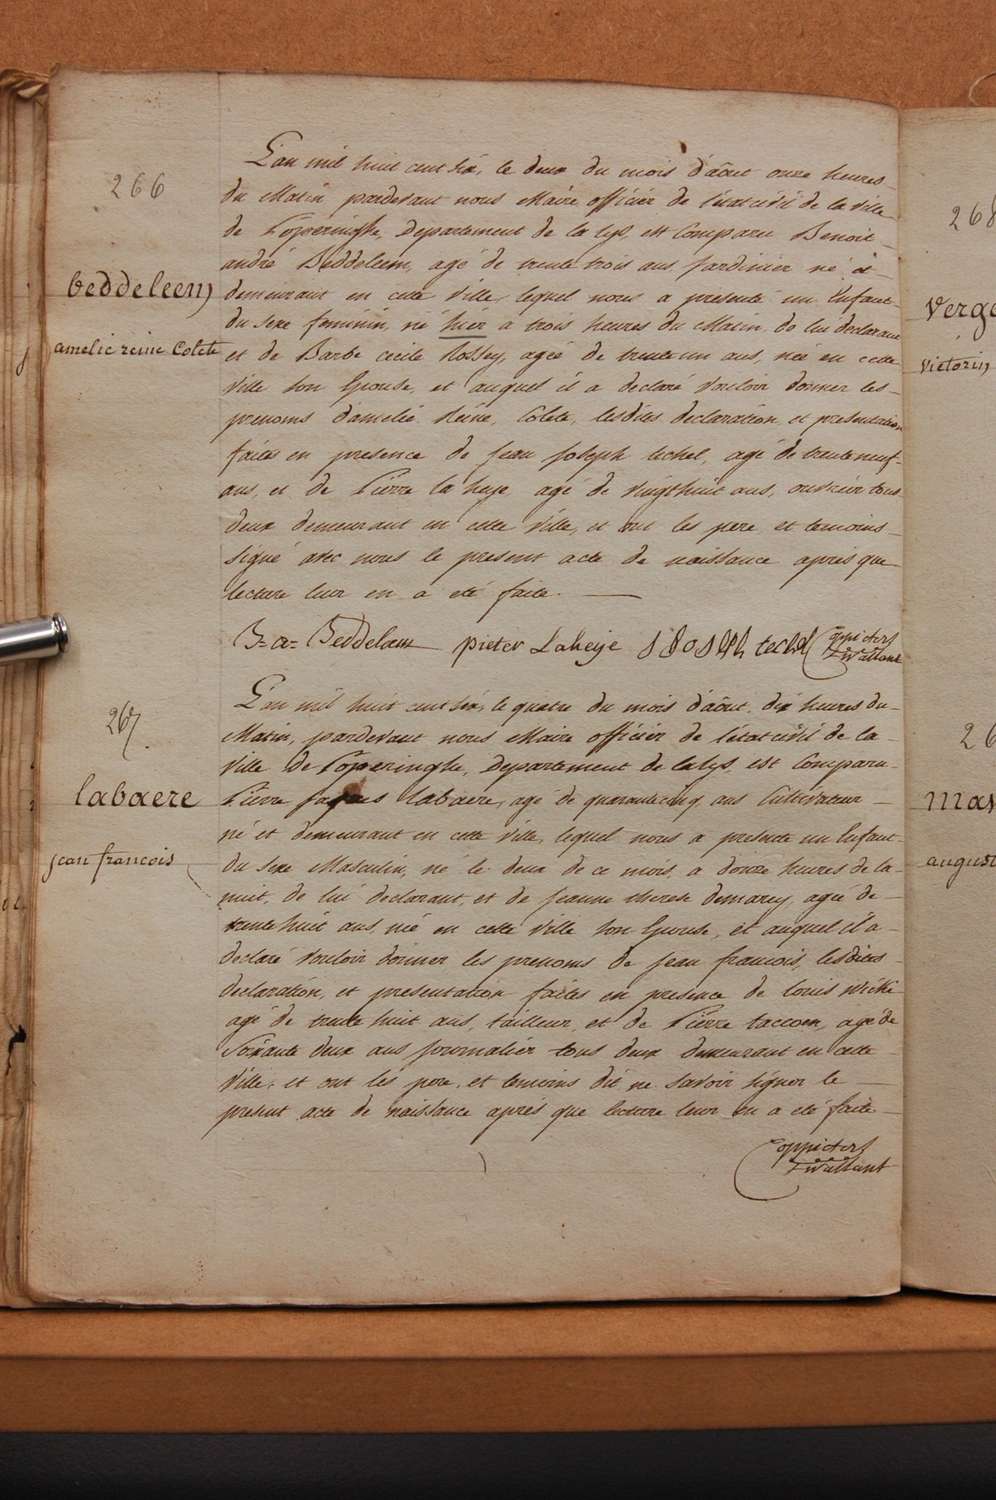 266
L'an mil huit cent six, le deux du mois d'août onze heures
du Matin pardevant nous Maire officier de l'état civil de la ville
de Poperinghe, Departement de la lys, est Comparu Benoit
andré Beddeleem, agé de trente trois ans Jardinier né et
beddeleem
demeurant en cette ville, lequel nous a presenté un Enfant
du sexe feminin, né hier a trois heures du Matin, de lui declarant
amelie reine Colete
et de Barbe cecile Rossey, agée de trente un ans, née en cette
ville son Epouse, et auquel il a declaré vouloir donner les
prenoms d'amelie Reine, Colete, lesdites declaration et presentation
faites en presence de jean joseph techel, agé de trente neuf
ans, et de Pierre la heye agé de vingt huit ans, ouvrier tous
deux demeurant en cette ville, et ont les pere et temoins
signé avec nous le present acte de naissance après que
lecture leur en a été faite.
B=a= Beddeleem pieter Laheije techel
267
L'an mil huit cent six, le quatre du mois d'août dix heures du
Matin, pardevant nous Maire officier de l'état civil de la
ville de Poperinghe, Departement de la lys, est Comparu
labaere
Pierre jaques labaere, agé de quarante cinq ans Cultivateur
né et demeurant en cette ville, lequel nous a presenté un Enfant
jean francois
du sexe Masculin, né le deux de ce mois, a douze heures de la
nuit, de lui declarant, et de jeanne therese demarey, agée de
trente huit ans, née en cette ville son Epouse, et auquel il a
declaré vouloir donner les prenoms de jean francois, lesdites
declaration, et presentation faites en presence de Louis
agé de trente huit ans, tailleur, et de Pierre taccoen, agé de
Soixante deux ans journalier tous deux demeurant en cette
ville, et ont les pere, et temoins dit ne savoir signer le
present acte de naissance après que lecture leur en a été faite
268
victorin